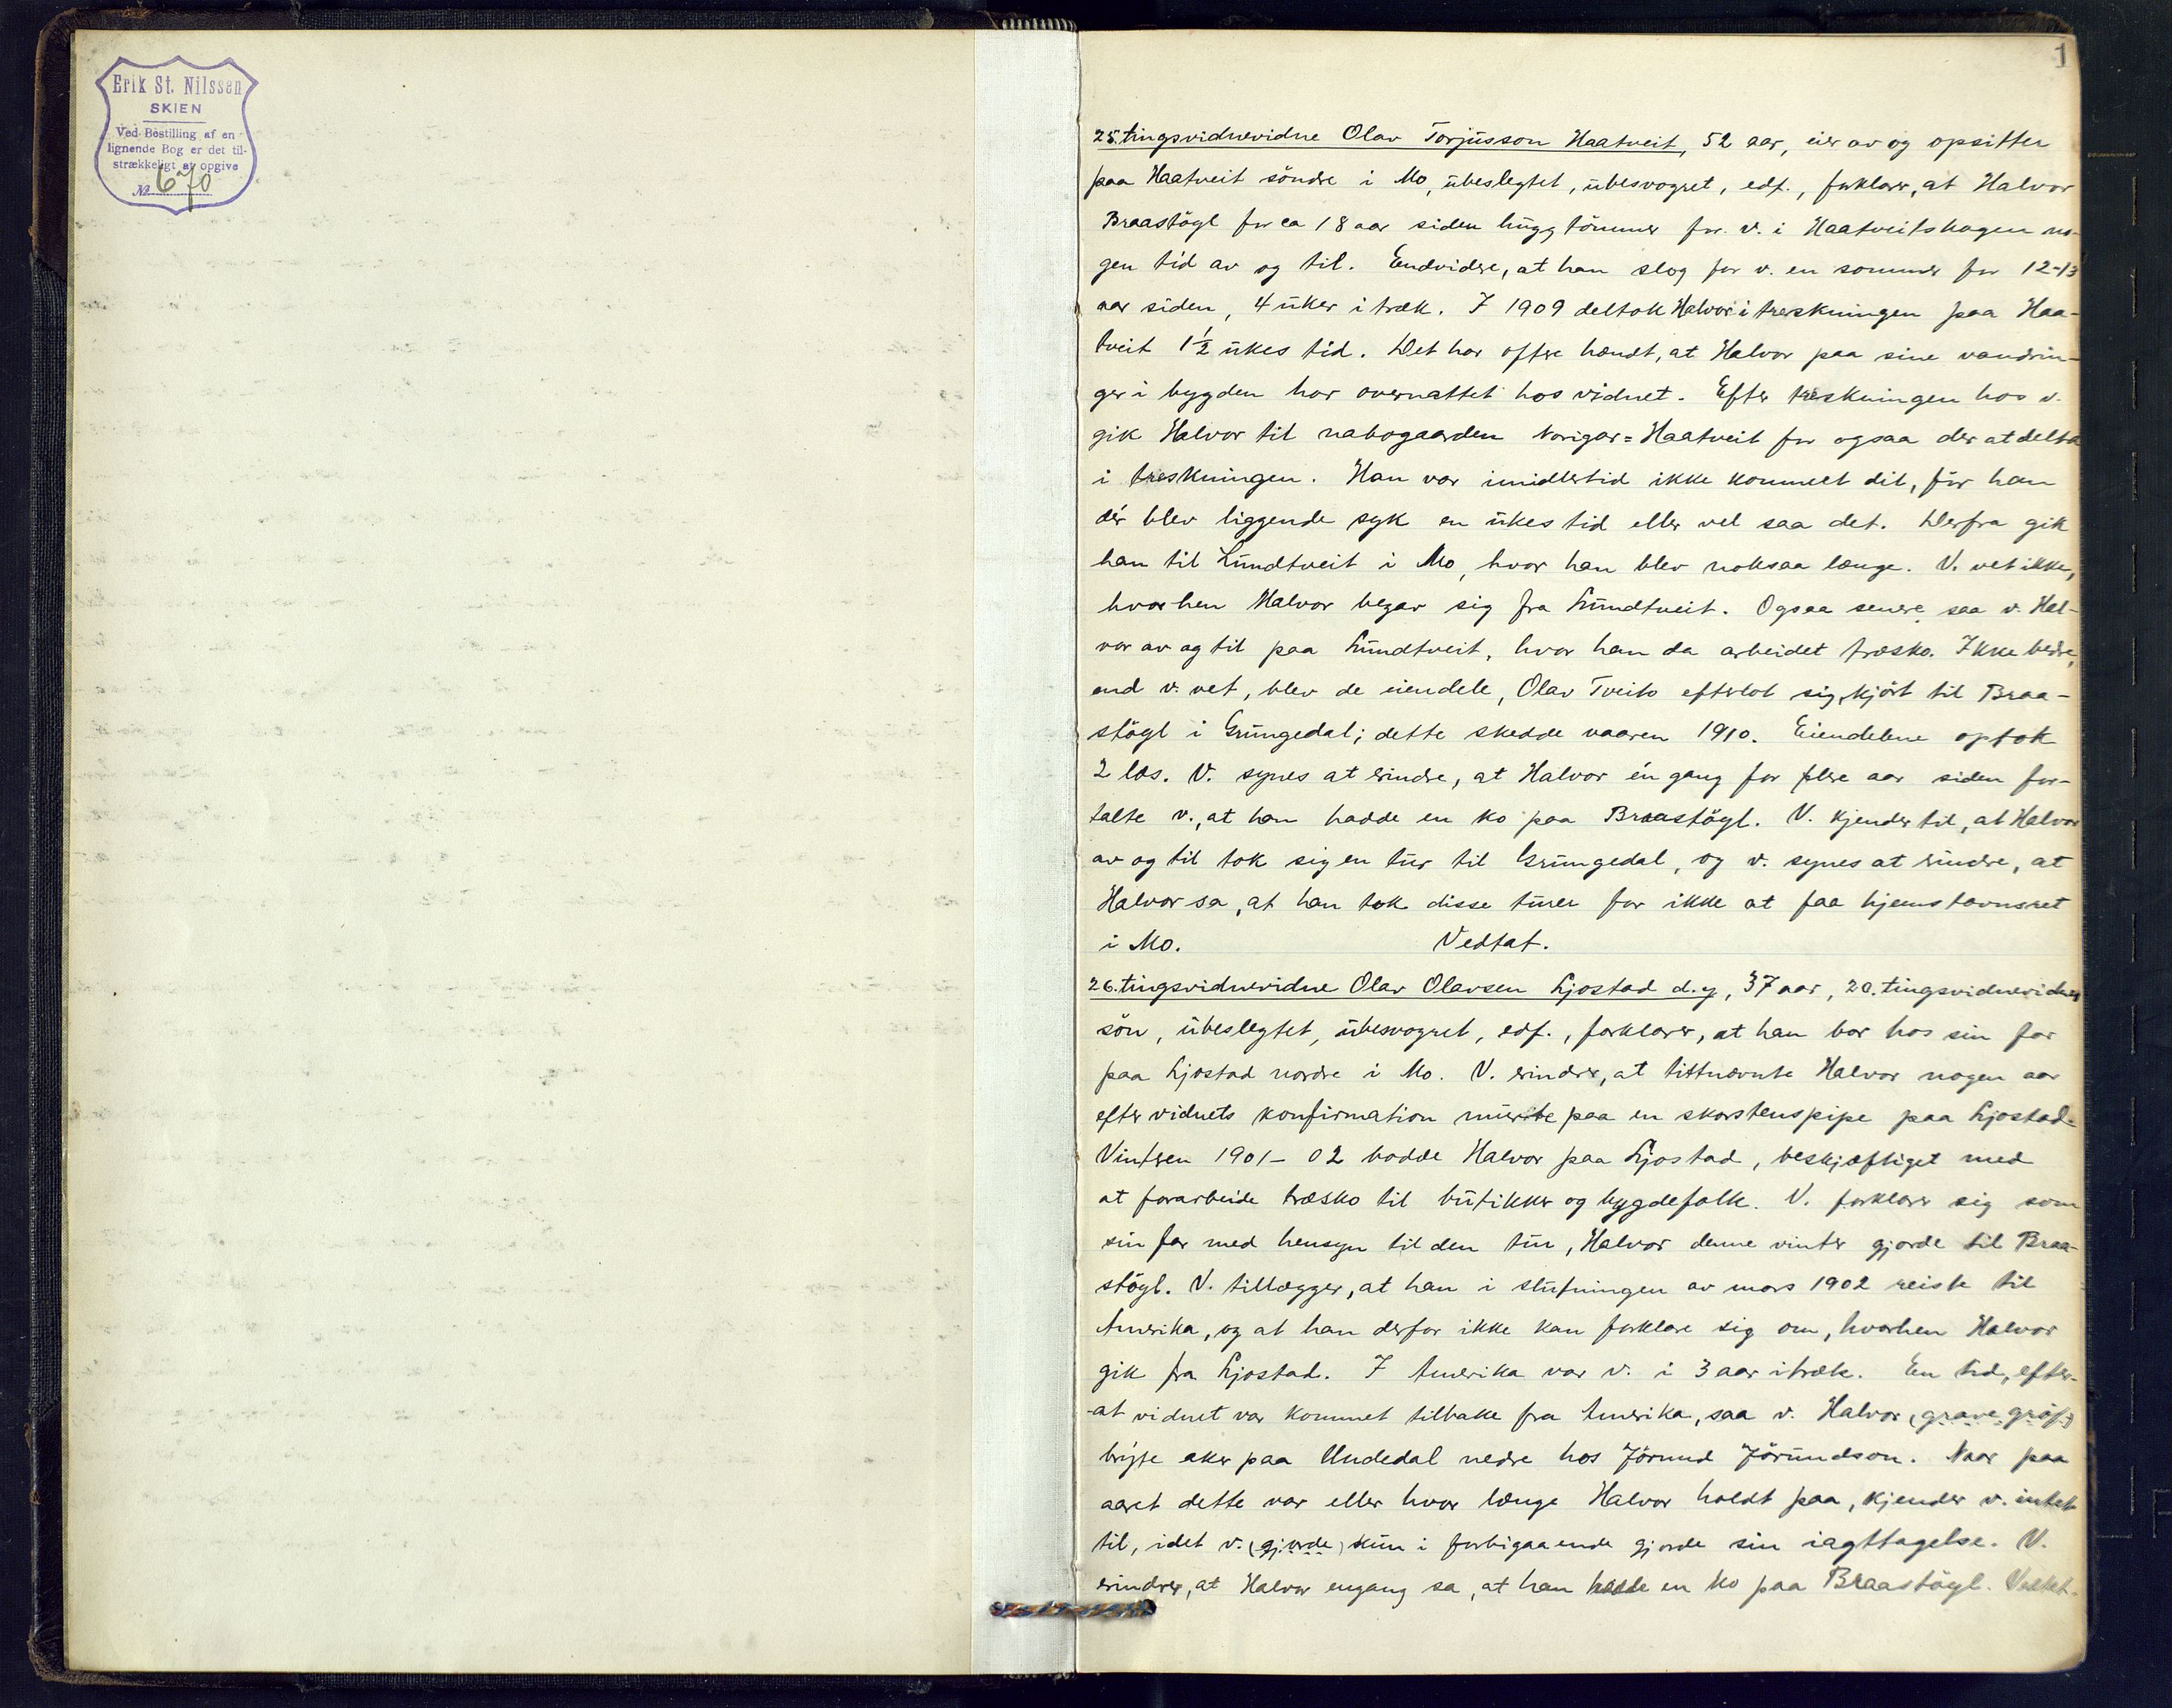 Erik St. Nilssen
SKIEN
Ved Bestilling af en
lignende Bog er det til-
strækkeligt at opgive
No. 670
1
25. tingsvidnevidne Olav Torjusson Haatveit, 52 aar, eier av og opsitter
paa Haatveit söndre i Mo, ubeslegtet, ubesvogret, edf., forklarer, at Halvor
Braastögl for ca 18 aar siden hugg tömmer for v. i Haatveitshagen no-
gen tid av og til. Endvidere, at han slog for v. en sommer for 12-13
aar siden, 4 uker i træk. I 1909 deltok Halvor i treskningen paa Haa-
tveit 1½ ukes tid. Det har oftere hændt, at Halvor paa sine vandrin-
ger i bygden har overnattet hos vidnet. Efter treskningen hos v.
gik Halvor til nabogaarden Norigar=Haatveit for ogsaa der at delta
i treskningen. Han var imidlertid ikke kommet dit, för han
dér blev liggende syk en ukes tid eller vel saa det. Derfra gik
han til Lundtveit i Mo, hvor han blev noksaa længe. V. vet ikke,
hvorhen Halvor begav sig fra Lundtveit. Ogsaa senere saa v. Hal-
vor av og til paa Lundtveit, hvor han da arbeidet træsko. Ikke bedre,
end v. vet, blev de eiendele, Olav Tveito efterlot sig, kjört til Braa-
stögl i Grungedal; dette skedde vaaren 1910. Eiendelene optok
2 læs. V. synes at erindre, at Halvor én gang for flere aar siden for-
talte v., at han hadde en ko paa Braastögl. V. kjender til, at Halvor
av og til tok sig en tur til Grungedal, og v. synes at erindre, at
Halvor sa, at han tok disse turer for ikke at faa hjemstavnsret
i Mo. Vedtat.
26. tingsvidnevidne Olav Olavsen Ljostad d.y., 37 aar, 20. tingsvidnevidnes
sön, ubeslegtet, ubesvogret, edf., forklarer, at han bor hos sin far
paa Ljostad nordre i Mo. V. erindrer, at tittnævnte Halvor nogen aar
efter vidnets konfirmation murte paa en skorstenspipe paa Ljostad.
Vinteren 1901-02 bodde Halvor paa Ljostad, beskjæftiget med
at forarbeide træsko til butikker og bygdefolk. V. forklarer sig som
sin far med hensyn til den tur, Halvor denne vinter gjorde til Braa-
stögl. V. tillægger, at han i slutningen av mars 1902 reiste til
Amerika, og at han derfor ikke kan forklare sig om, hvorhen Halvor
gik fra Ljostad. I Amerika var v. i 3 aar itræk. En tid, efter-
at vidnet var kommet tilbake fra Amerika, saa v. Halvor (grave gröft)
bryte aker paa Undedal nedre hos Jörund Jörundson. Naar paa
aaret dette var eller hvor længe Halvor holdt paa, kjender v. intet
til, idet v. (gjorde) kun i forbigaaende gjorde sin iagttagelse. V.
erindrer, at Halvor engang sa, at han hadde en ko paa Braastögl. Vedtat.